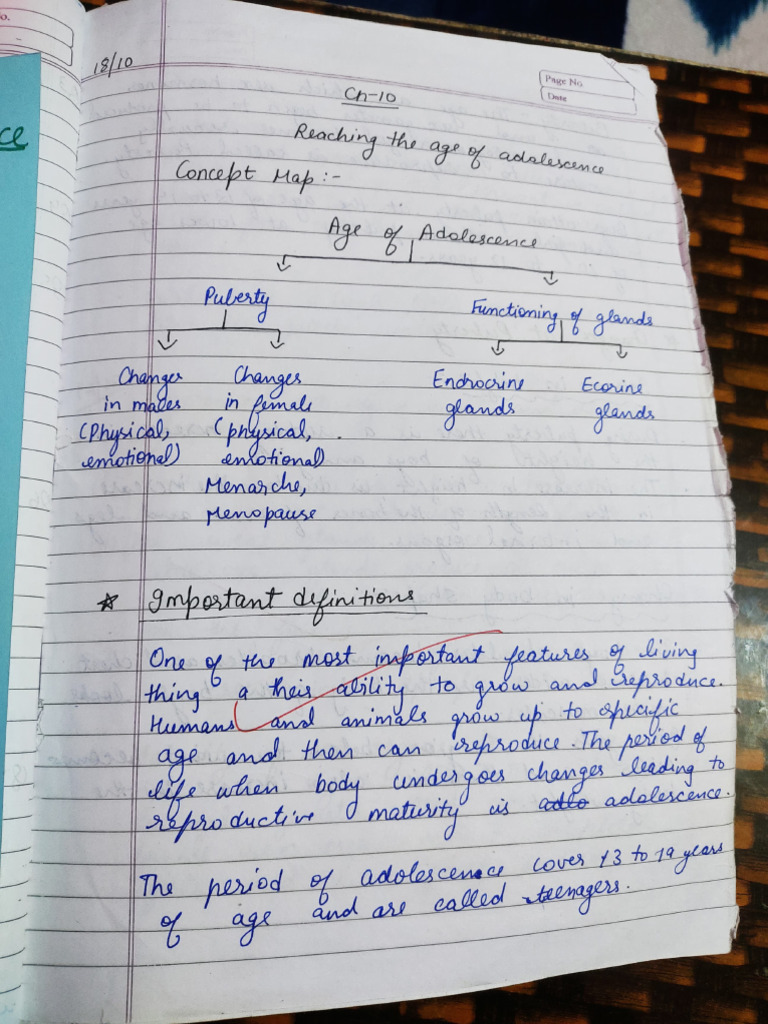 o.
ce
18/10
Page No.
Date
Ch-10
Reaching the age of adolescence
Concept Map :-
Age of Adolescence
Puberty
Functioning of glands
Changes Changes Endrocrine Ecorine
in males in female glands glands
(Physical, (physical,
emotional) emotional
Menarche,
Menopause
☆ Important definitions
One of the most important features of living
thing a theis ability to grow and reproduce.
Humans and animals grow up to specific
age and then can reproduce. The period of
life when body undergoes changes leading to
reproductive maturity is adlo adolescence.
The period of adolescence cover 13 to 19 years
of age and are called teenagers.